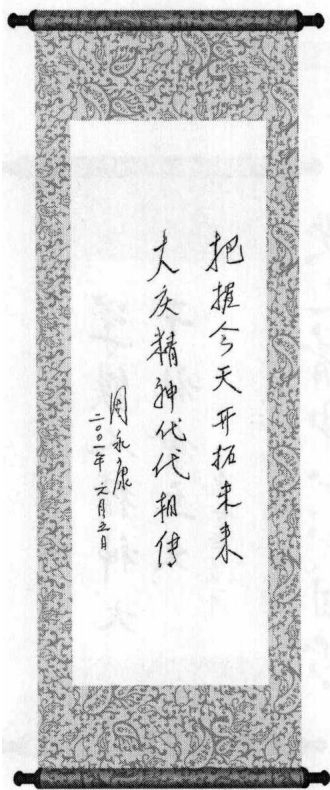 把握今天开拓未来
大庆精神代代相传
周永康
二〇〇一年六月五日